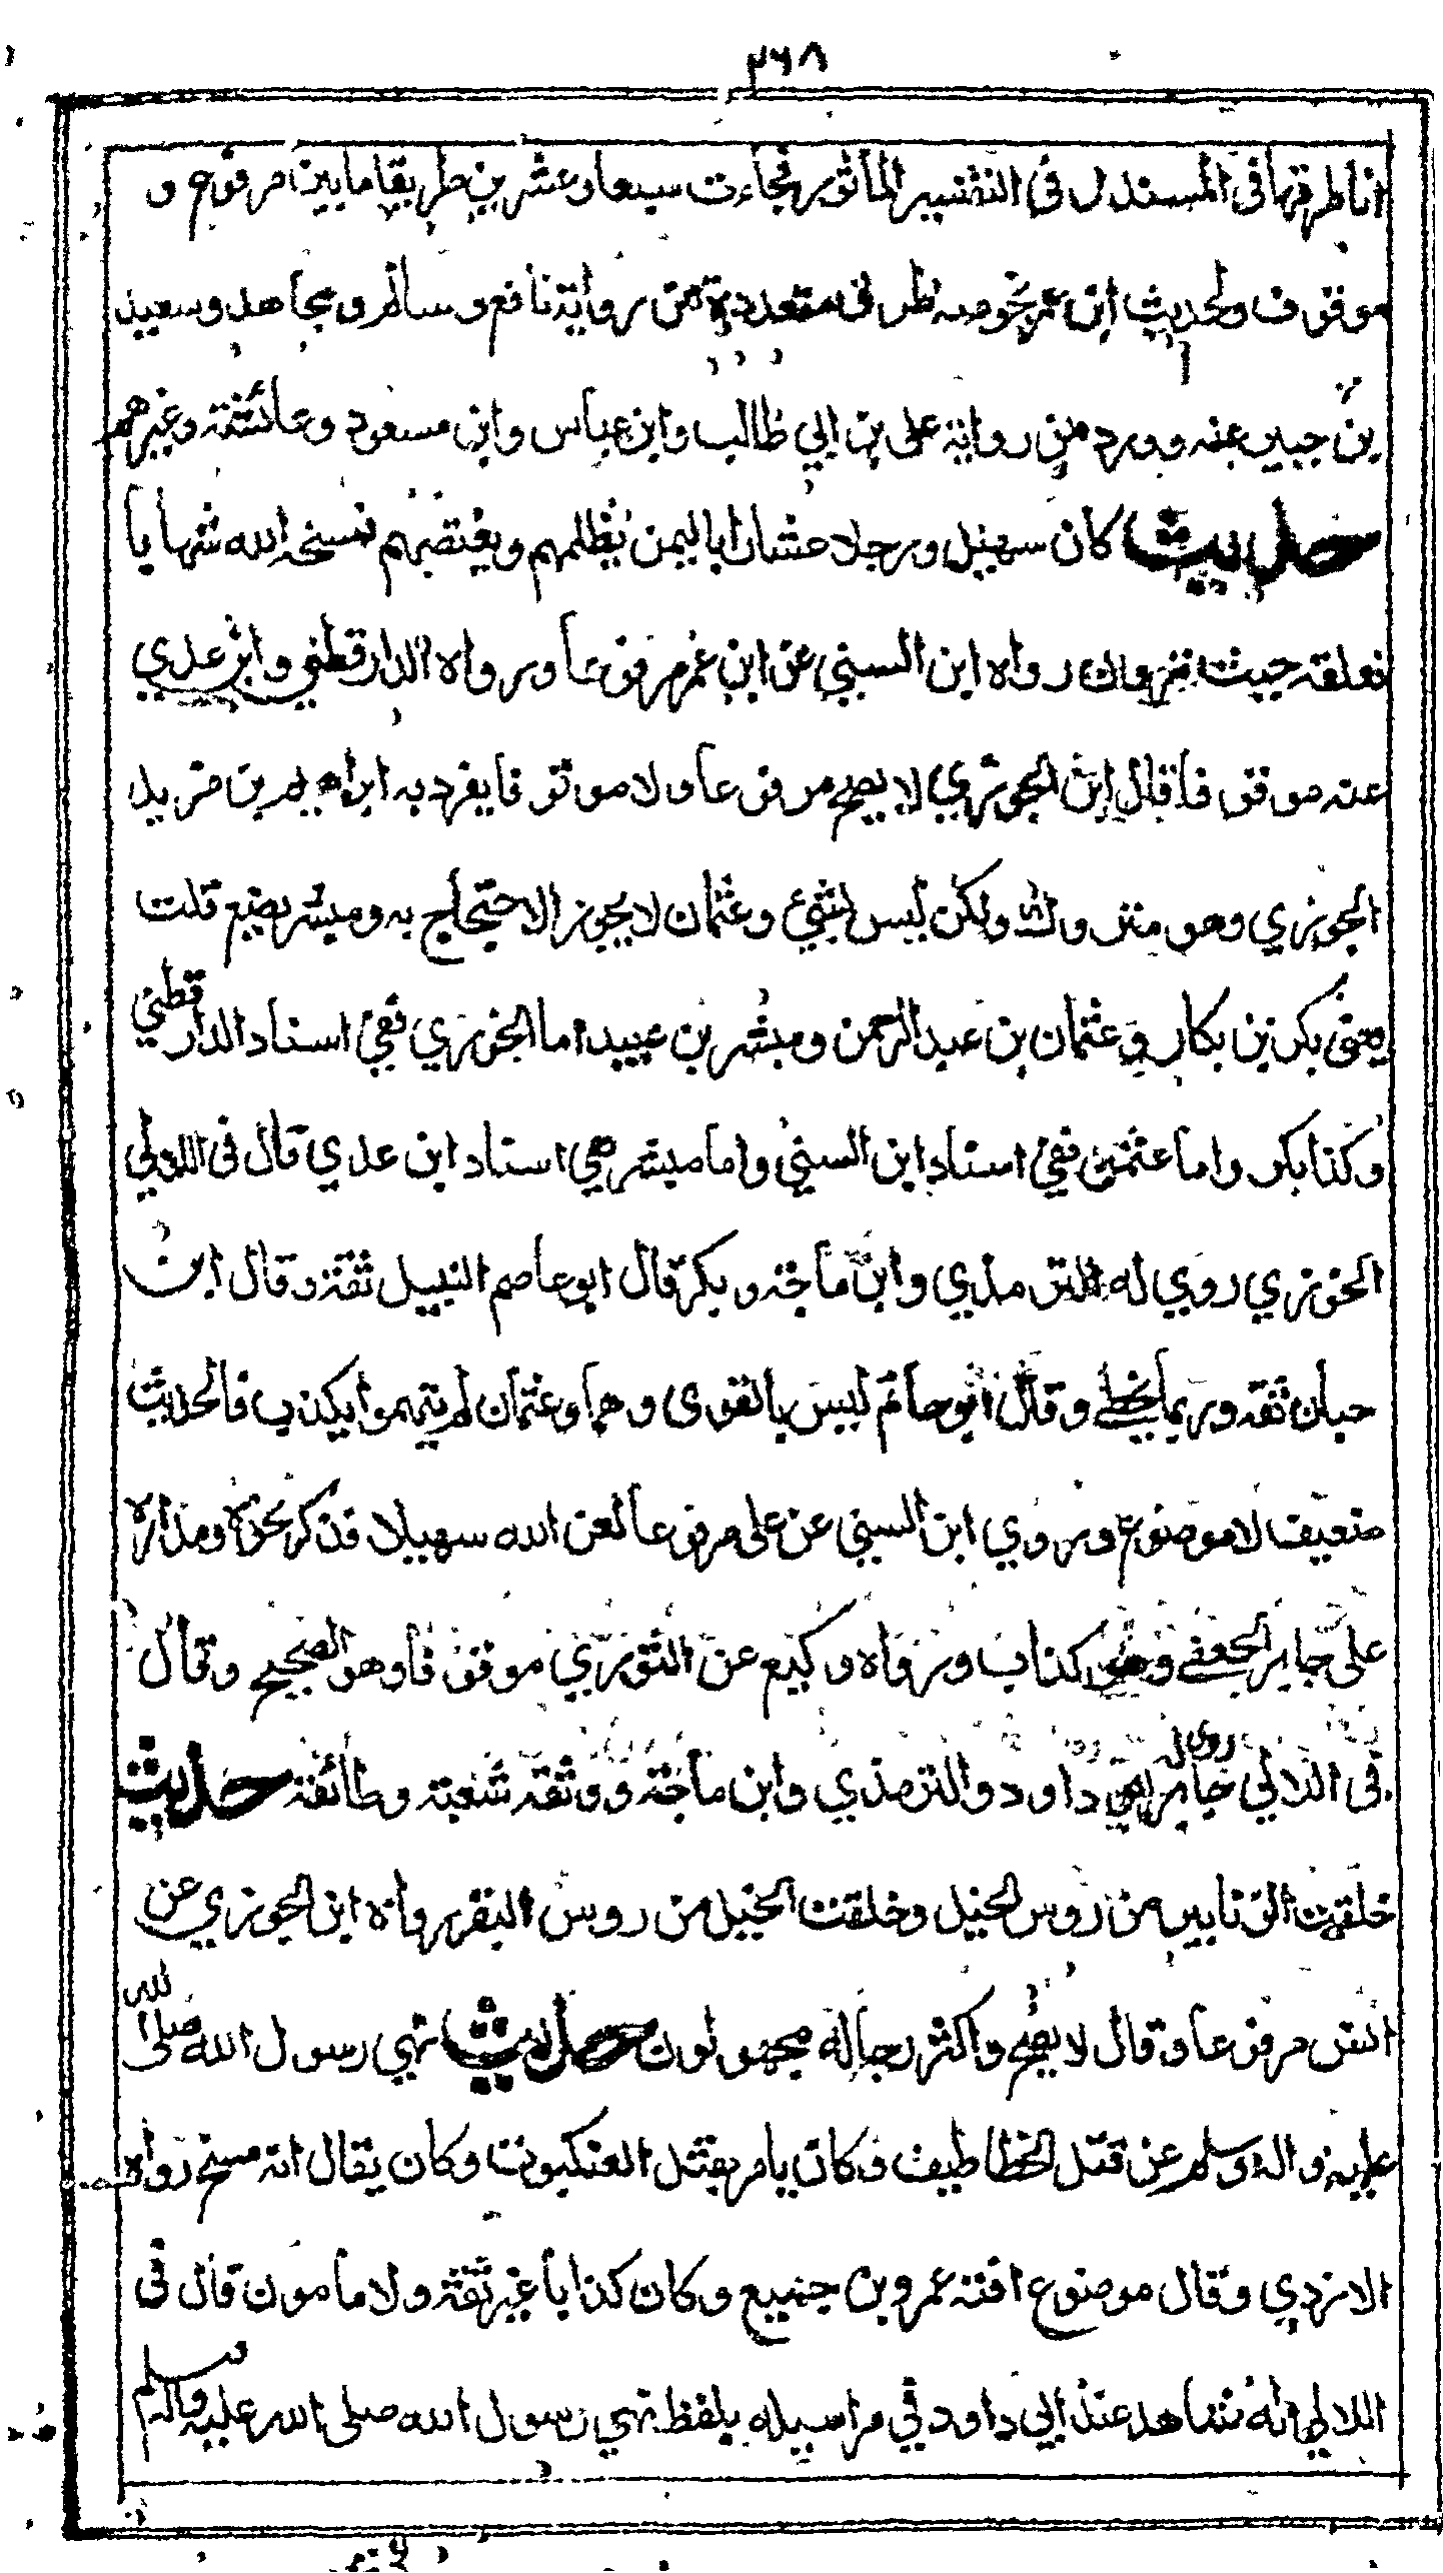 ٢٦٨
انا طرقها فى المسند ل في التفسير المأثور فجاءت سبعا وعشرين طريقا ما بين مرفوع و
موقوف ولحديث ابن عمر بخوصه طرق متعددة من رواية نافع وسالم ومجاهد وسعيد
بن جبير عنه وورد من رواية على بن ابي طالب وابن عباس وابن مسعود وعائشة وغيرهم
حديث كان سهيل رجلا عشارا باليمن يظلمهم ويغتصبهم فمسخه الله شهابا
فعلقه حيث ترونه رواه ابن السني عن ابن عمر مرفوعا ورواه الدارقطني وابن عدي
عنه موقوفا قال ابن الجوزي لا يصح مرفوعا ولا موقوفا تفرد به ابراهيم بن يزيد
الخوزي وهو متروك وبكر ليس بشئ وعثمان لا يجوز الاحتجاج به ومبشر يضع قلت
يعنى بكر بن بكار وعثمان بن عبد الرحمن ومبشر بن عبيد اما الخوزي ففي اسناد الدارقطني
وكذا بكر واما عثمن ففي اسناد ابن السني واما مبشر ففي اسناد ابن عدي قال فى اللالي
الخوزي روي له الترمذي وابن ماجة وبكر قال ابو عاصم النبيل ثقة وقال ابن
حبان ثقة وربما يخطئ وقال ابو حاتم ليس بالقوى وهما وعثمان لم يتهموا بكذب فالحديث
ضعيف لا موضوع وروي ابن السني عن على مرفوعا لعن الله سهيلا فذكر نحوه ومداره
على جابر الجعفے وهو كذاب ورواه وكيع عن الثوري موقوفا وهو الصحيح وقال
فى اللالي جابر روى له ابو داود والترمذي وابن ماجة ووثقه شعبة وطائفة حديث
خلقت الزنابير من روس الخيل وخلقت النحل من روس البقر رواه ابن الجوزي عن
انس مرفوعا وقال لا يصح واكثر رجاله مجهولون حديث نهي رسول الله صلى الله
عليه واله وسلم عن قتل الخطاطيف وكان يامر بقتل العنكبوت وكان يقال انه مسخ رواه
الازدي وقال موضوع افته عمرو بن جميع وكان كذابا غير ثقة ولا مأمون قال فى
اللالي وله شاهد عند ابي داود في مراسيله بلفظ نهي رسول الله صلى الله عليه واله وسلم